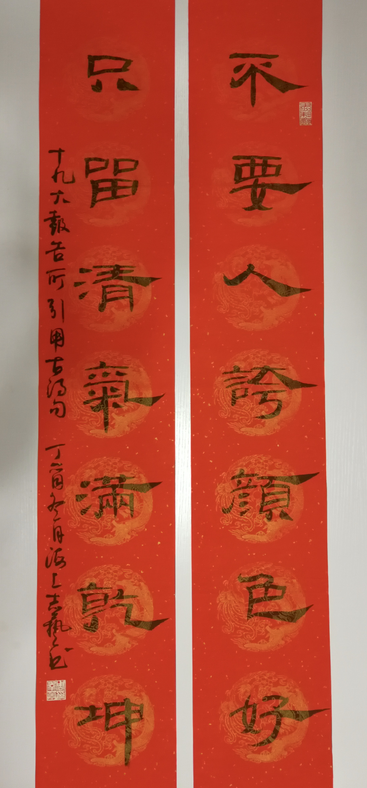 不要人誇顔色好
只留清氣滿乾坤
十九大報告所引用古詩句 丁酉冬月海上